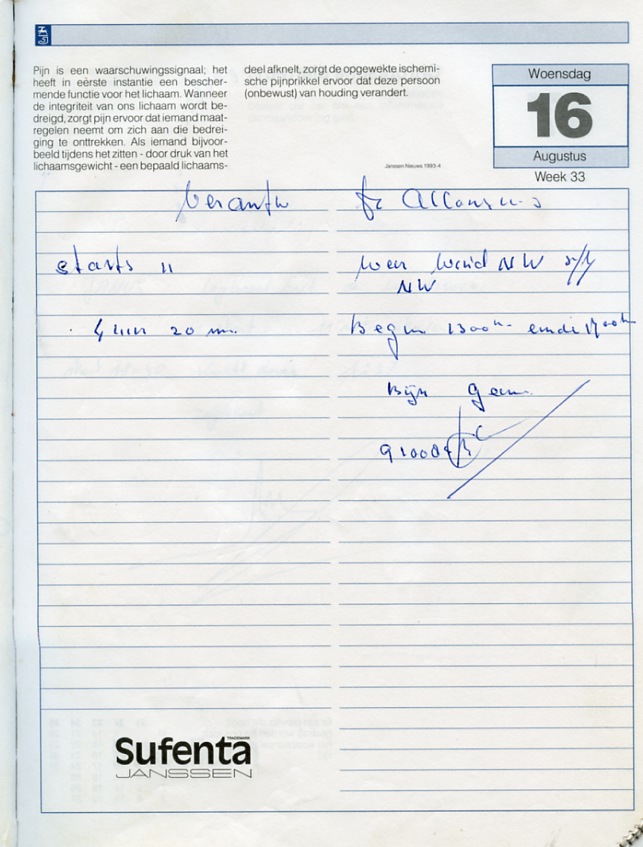 Pijn is een waarschuwingssignaal; het
heeft in eerste instantie een bescher-
mende functie voor het lichaam. Wanneer
de integriteit van ons lichaam wordt be-
dreigd, zorgt pijn ervoor dat iemand maat-
regelen neemt om zich aan die bedrei-
ging te onttrekken. Als iemand bijvoor-
beeld tijdens het zitten - door druk van het
lichaamsgewicht - een bepaald lichaams-
deel afknelt, zorgt de opgewekte ischemi-
sche pijnprikkel ervoor dat deze persoon
(onbewust) van houding verandert.
Janssen Nieuws 1993-4
Woensdag
16
Augustus
Week 33
starts 11
weer wind NW
NW
4 uur 20 m.
Begin 1300u einde
Bijz geen
TRADEMARK
Sufenta
JANSSEN